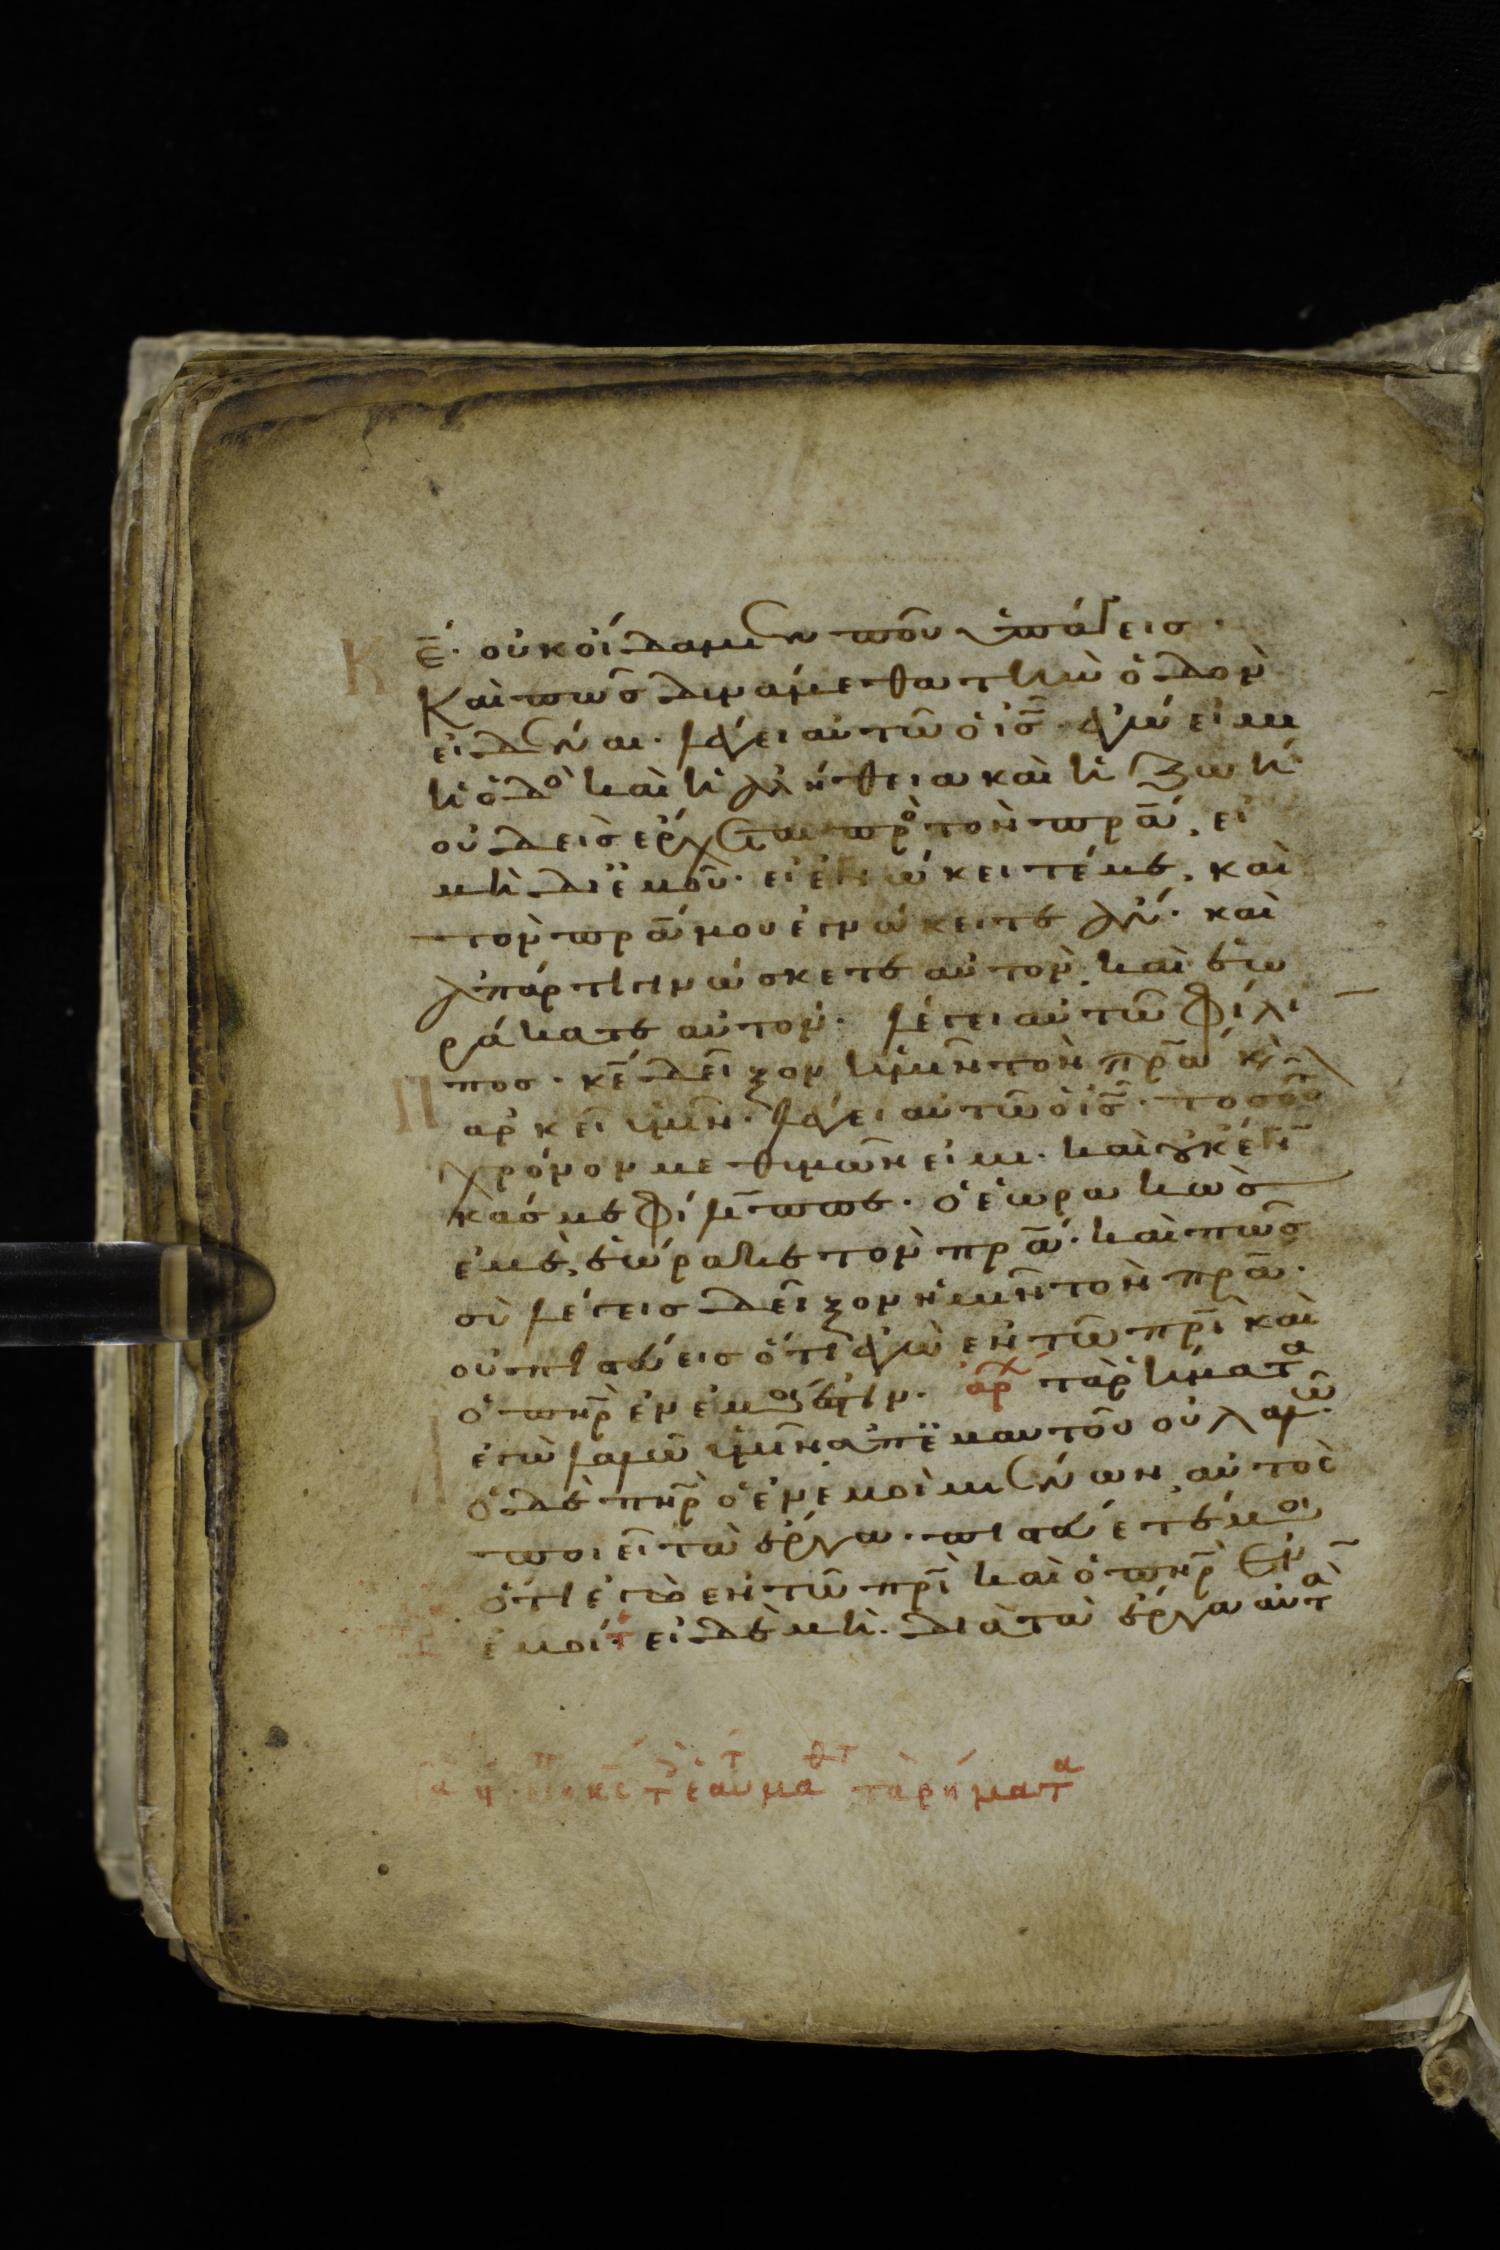 κ̅ε̅· οὐκ οἴδαμεν ποῦ ὑπάγεις·
Καὶ πῶς δυνάμεθα τὴν ὁδὸν
εἰδέναι· λέγει αὐτῶ ὁ ι̅ς̅· ἐγώ εἰμι
ἡ ὁδο καὶ ἡ ἀλήθεια καὶ ἡ ζωή·
οὐδεὶς ἔρχεται προ τὸν π̅ρ̅α̅, εἰ
μὴ δι' ἐμοῦ· εἰ ἐγνώκειτέ με, καὶ
τὸν π̅ρ̅α̅ μου ἐγνώκειτε ἄν· καὶ
ἀπάρτι γινώσκετε αὐτὸν, καὶ ἑω
ράκατε αὐτόν· λέγει αὐτῶ Φίλι
πος· κ̅ε̅ δεῖξον ἡμῖν τὸν π̅ρ̅α̅ κὶ
ἀρκεῖ ἡμῖν· λέγει αὐτῶ ὁ ι̅ς̅· τοσοῦτο
χρόνον μεθ' ὑμῶν εἰμι· καὶ οὐκ ἔγν
κάς με Φίλιππε· ὁ ἑωρακὼς
ἐμὲ, ἑώρακε τὸν π̅ρ̅α̅· καὶ πῶς
σὺ λέγεις δεῖξον ἡμῖν τὸν π̅ρ̅α̅·
οὐ πιστεύεις ὅτι ἐγὼ ἐν τῶ π̅ρ̅ι̅ καὶ
ὁ π̅η̅ρ̅ ἐν ἐμοί ἐστιν· ἀρχ τὰ ῥήματα
ἐγὼ λαλῶ ὑμῖν ἀπ' ἐμαυτοῦ οὐ λαλῶ·
ὁ δὲ π̅η̅ρ̅ ὁ ἐν ἐμοὶ μένων, αὐτὸς
ποιεῖ τὰ ἔργα· πιστεύετέ μοι
ὅτι ἐγὼ ἐν τῶ π̅ρ̅ι̅ καὶ ὁ π̅η̅ρ̅ ἐν
ἐμοί· εἰ δὲ μὴ· διὰ τὰ ἔργα αὐτὰ
τὰ ῥήματα